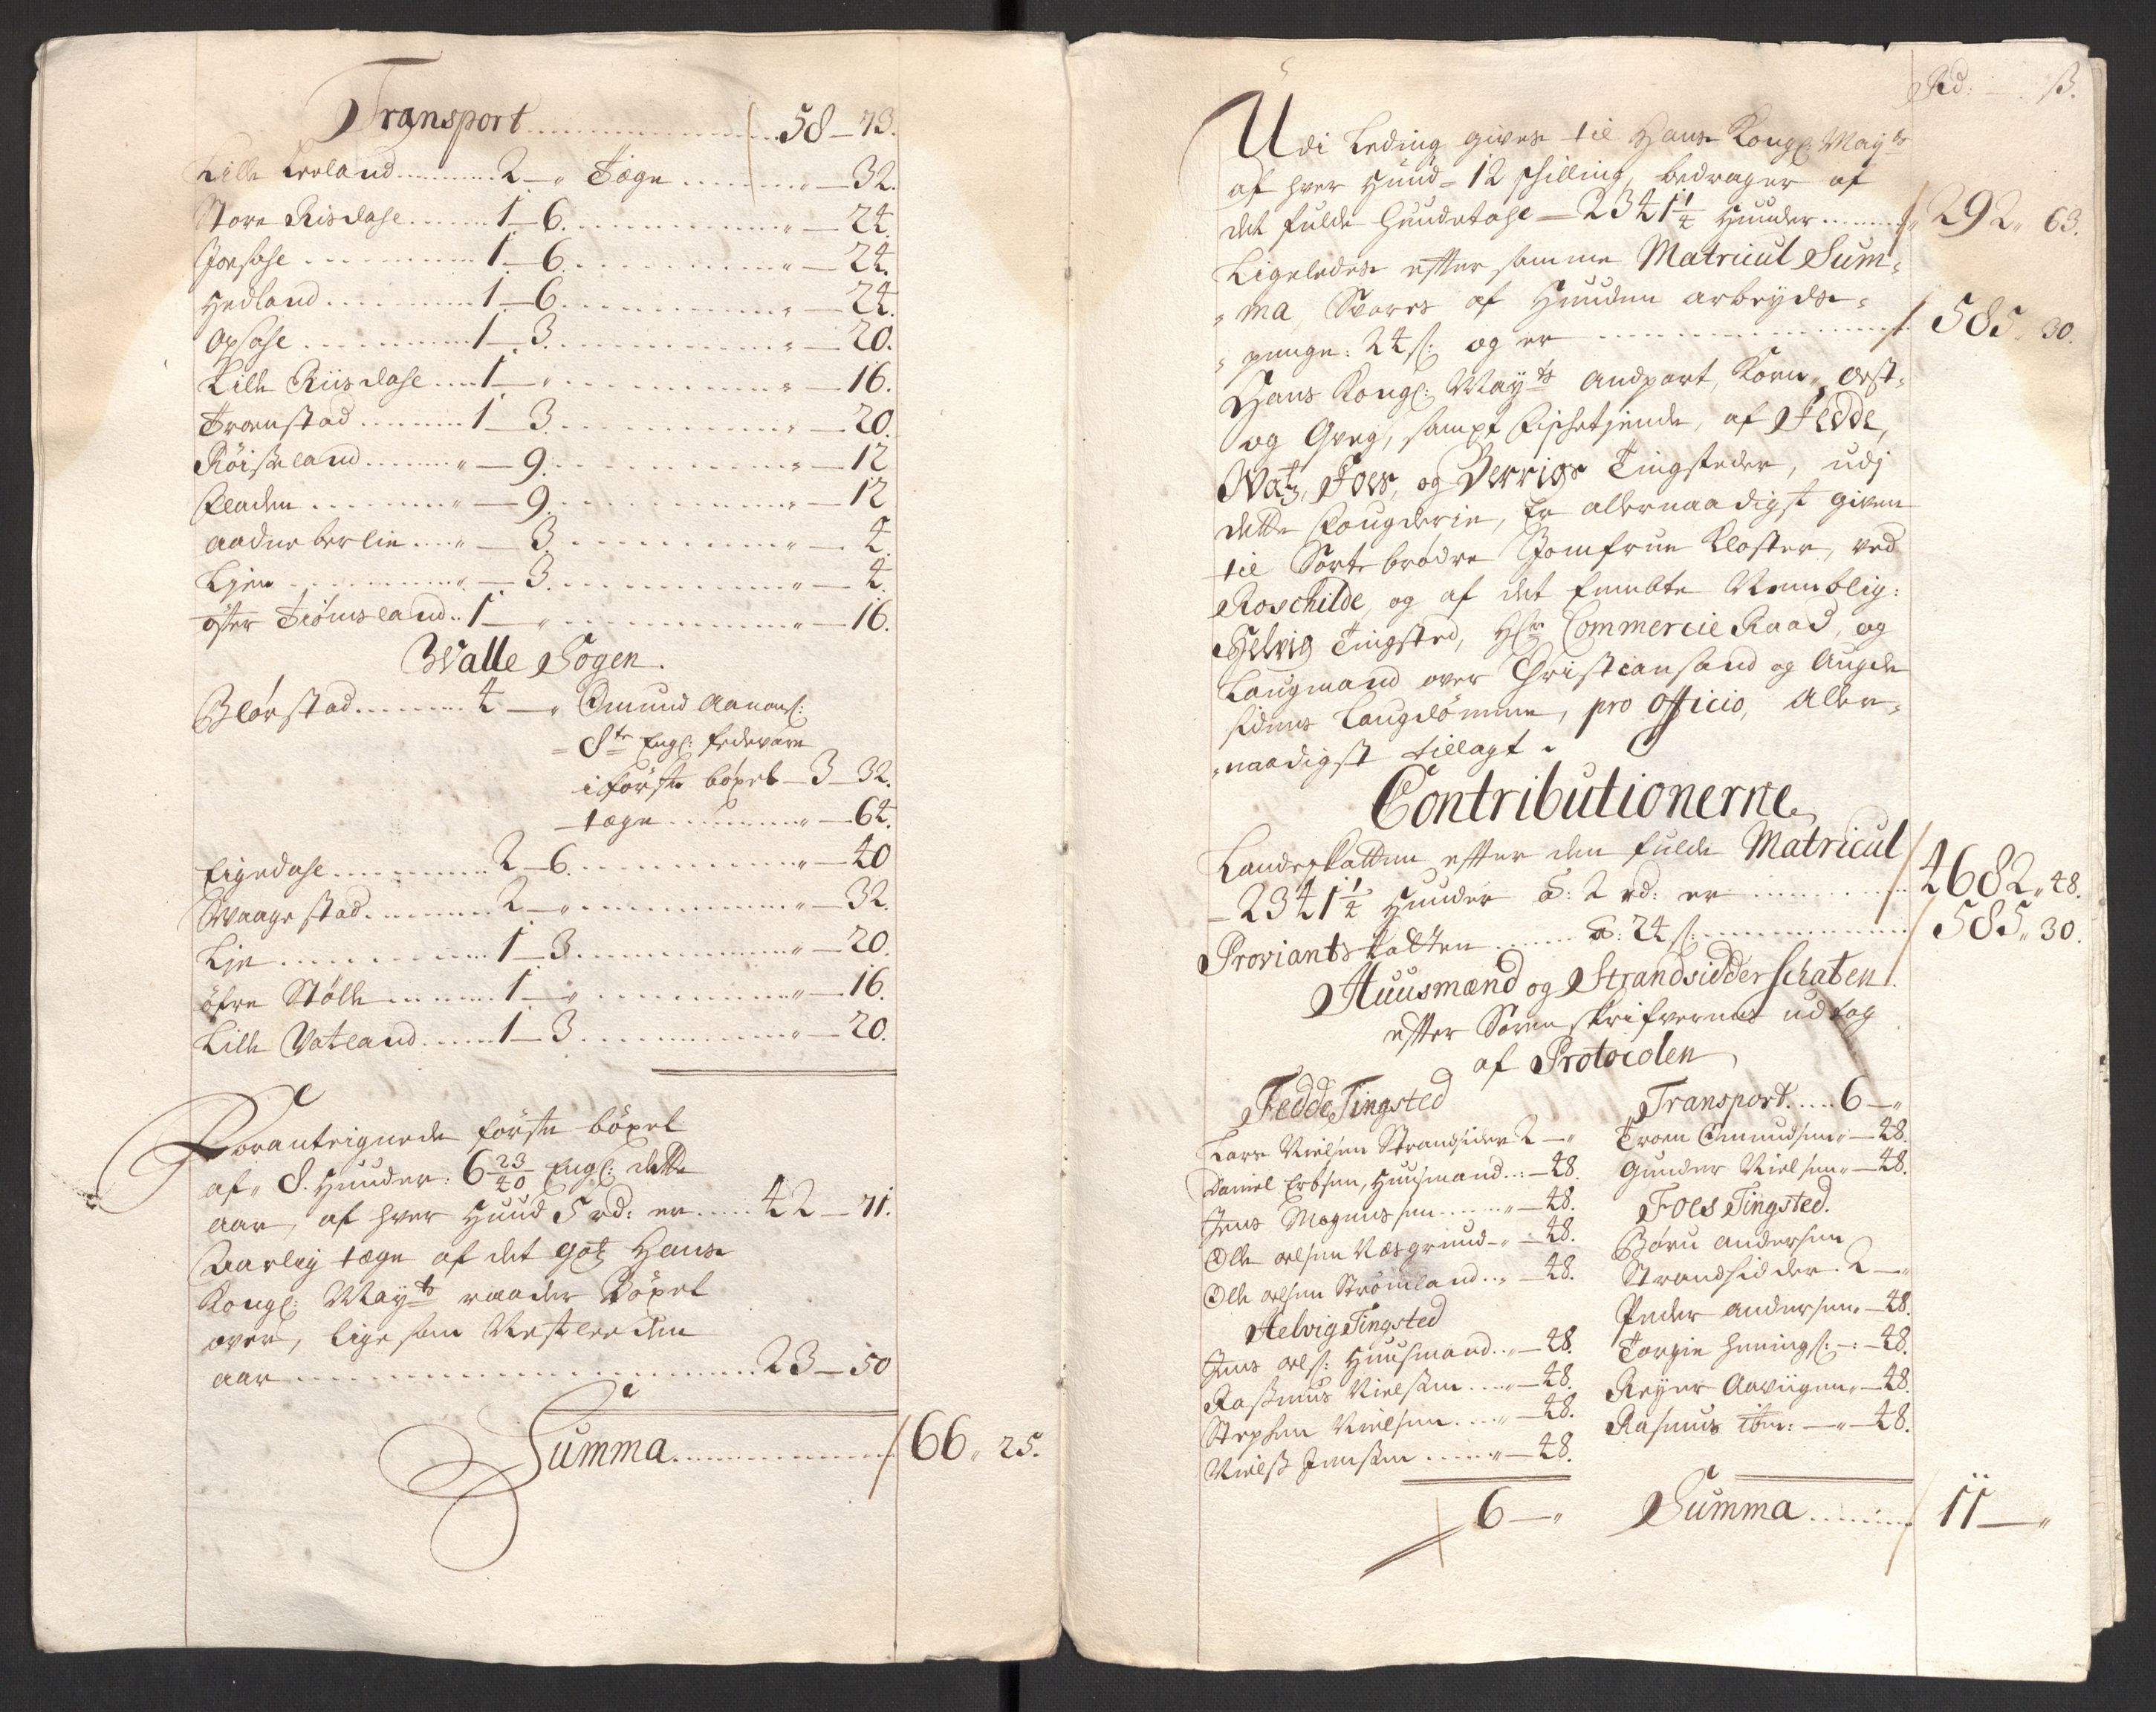 Transport ........ 58 – 73.
Lille Leeland ........ 2 – „ Tægn ........ „ – 32.
Store Risdahl ........ 1 – 6. ........ „ – 24.
Joesahl ........ 1 – 6 ........ „ – 24.
Hedland ........ 1 – 6 ........ „ – 24.
Opsahl ........ 1 – 3. ........ „ – 20.
Lille Riisdahl .... 1 – „ ........ „ – 16.
Troenstad ........ 1 – 3 ........ „ – 20.
Röisseland ........ „ – 9. ........ „ – 12
Fladen ........ „ – 9. ........ „ – 12
Aadneberlie .... „ – 3. ........ „ – 4.
Lien ........ „ – 3. ........ „ – 4.
öster Tiömsland .. 1 – „ ........ „ – 16.
Walle Sogen.
Blörstad ........ 4 – „ Omund Aanons:
8te Engl: fedevare
i förste böxel – 3 – 32.
– tægn ........ „ – 64.
Eigedahl ........ 2 – 6. ........ „ – 40
Waagestad ........ 2 – „ ........ „ – 32.
Lie ........ 1 – 3 ........ „ – 20.
öfre Stölle ........ 1 – „ ........ „ – 16.
Lille Vatland ...... 1 – 3 ........ „ – 20.
Foranteignede förste böxel
af „ 8. Huuder: 6 23/40 Engl: dette
aar, af hver Huud 5 rd: er ..... 42 – 71.
Aarlig tægn af det gotz Hans
Kongl: Mayts raader Böxel
over, lige som Nestleeden
aar ........ 23 – 50
Summa ........ 66 „ 25.
Rd: – ß.
Udi Leding gives til Hans Kongl: Mayts
af hver Huud – 12 skilling, bedrager af
det fulde Huudetahl – 2341 1/4 Huuder ........ 292 „ 63.
Ligeledes efter samme Matricul Sum„
„ma, Svares af Huuden arbeyds„
„penge: 24 s: og er ........ 585 „ 30.
Hans Kongl: Mayts andpart, Korn, ost„
og Qveg, sampt Fischetjende, af Fedde,
Natz, Foes, og Berrigs Tingsteder, udj
dette Fougderie, Er allernaadigst given
til Sortebrödre Jomfrue Kloster, ved
Roschilde, og af det fembte Nemblig:
Helvig Tingsted, Hr: Commercie Raad, og
Laugmand over Christiansand og Augde
sidens Laugdömme, pro Officio, Aller„
„naadigst tillagt.
Contributionerne
Landskatten efter den fulde Matricul
– 2341 1/4 Huuder à: 2 rd: er ........ 4682 „ 48.
Proviantskatten ...... à: 24 s: ........ 585 „ 30.
Huusmænd og Strandsidder Schaten
efter Sorenskrifverens udtog
af Protocolen
Fedde Tingsted
Lars Nielsen Strandsider 2 – „
Daniel Erbsen, Huusmand .. : – 48.
Jens Magnussen ...... „ – 48.
Olle olsen Næsgrund – „ – 48.
Olle olsen Strömland .. „ – 48.
Helvig Tingsted
Jens ols: Huusmand .. „ – 48.
Rassmus Nielssen .... „ – 48.
Stephen Nielsen .... „ – 48.
Nielss Jenssen ...... „ – 48.
6 – „
Transport ..... 6 – „
Troen Omundsen „ – 48.
Gunder Nielsen „ – 48.
Foes Tingsted.
Börn andersen
Strandsidder . 2 – „
Peder andersen „ – 48.
Torgie Henings: – : – 48.
Reyer Aaviigen „ – 48.
Rasmus ibm: – „ – 48.
Summa ........ 11 – „